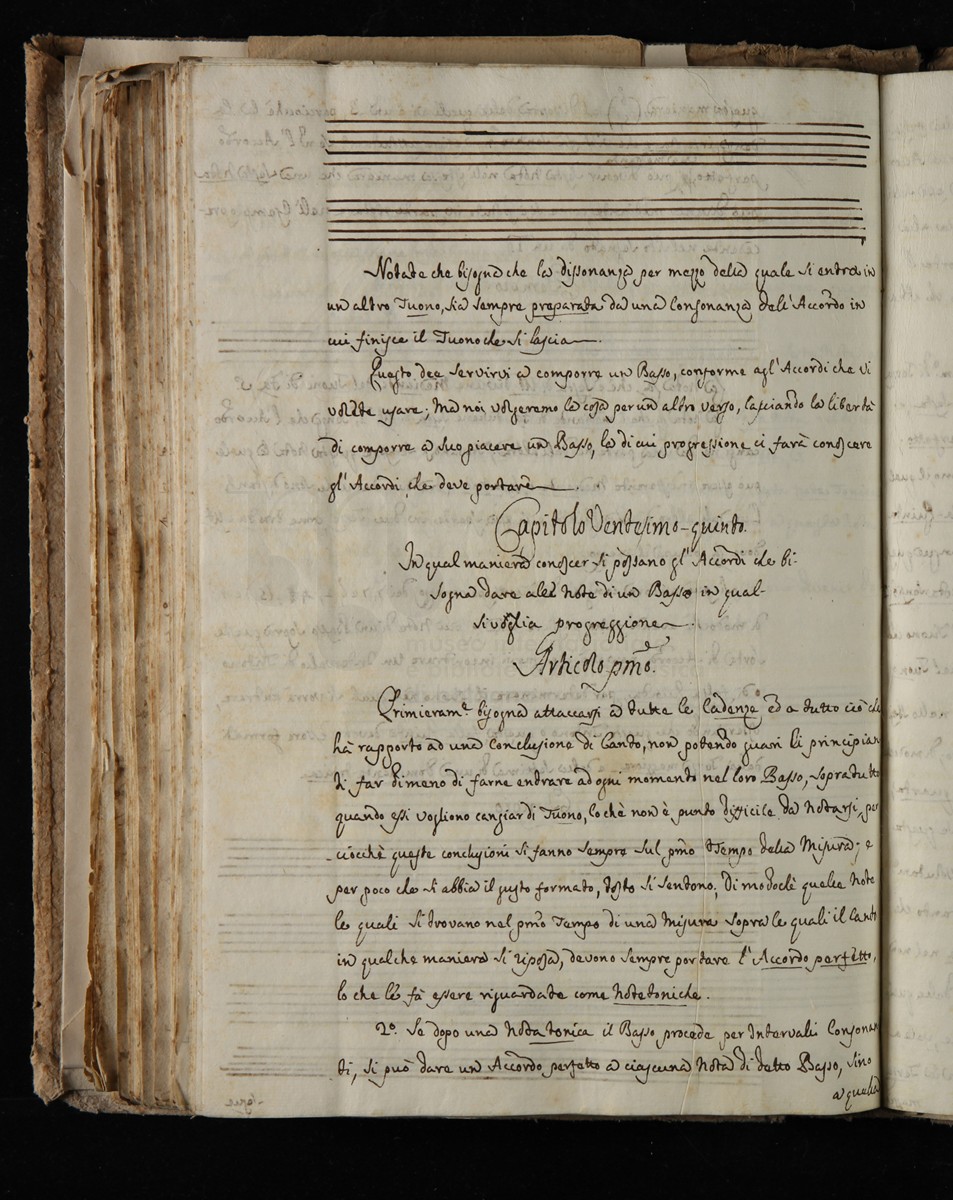 Notate che bisogna che la dissonanza per mezzo della quale si entra in
un altro Tuono, sia sempre preparata da una Consonanza dell'Accordo in
cui finisce il Tuono che si lascia.
Questo dee servirvi a comporre un Basso, conforme agl'Accordi che vi
volete usare; Ma noi volgeremo la cosa per un altro verso, lasciando la libertà
di comporre a suo piacere un Basso, la di cui progressione ci farà conoscere
gl'Accordi che deve portare.
Capitolo Ventesimo-quinto.
In qual maniera conoscer si possano gl'Accordi che bi-
sogna dare alle Note di un Basso in qual-
sivoglia progressione.
Articolo pmo.
Primieramte bisogna attaccarsi a tutte le Cadenze ed a tutto ciò che
hà rapporto ad una Conclusione di Canto, non potendo guari li principian
ti far dimeno di farne entrare ad ogni momento nel loro Basso, sopratutto
quando essi vogliono cangiar di Tuono, lo chè non è punto difficile da Notarsi, per
-ciocchè queste conclusioni si fanno sempre sul pmo Tempo della Misura; e
per poco che si abbia il gusto formato, tosto si sentono; Di modochè quelle Note
le quali si trovano nel pmo Tempo di una Misura sopra le quali il Canto
in qualche maniera si riposa, devono sempre portare l'Accordo perfetto,
lo che le fà essere riguardate come Note toniche.
2o. Se dopo una Nota tonica il Basso procede per Intervalli Consonan
ti, si può dare un Accordo perfetto a ciascuna Nota di detto Basso, sino
a quella